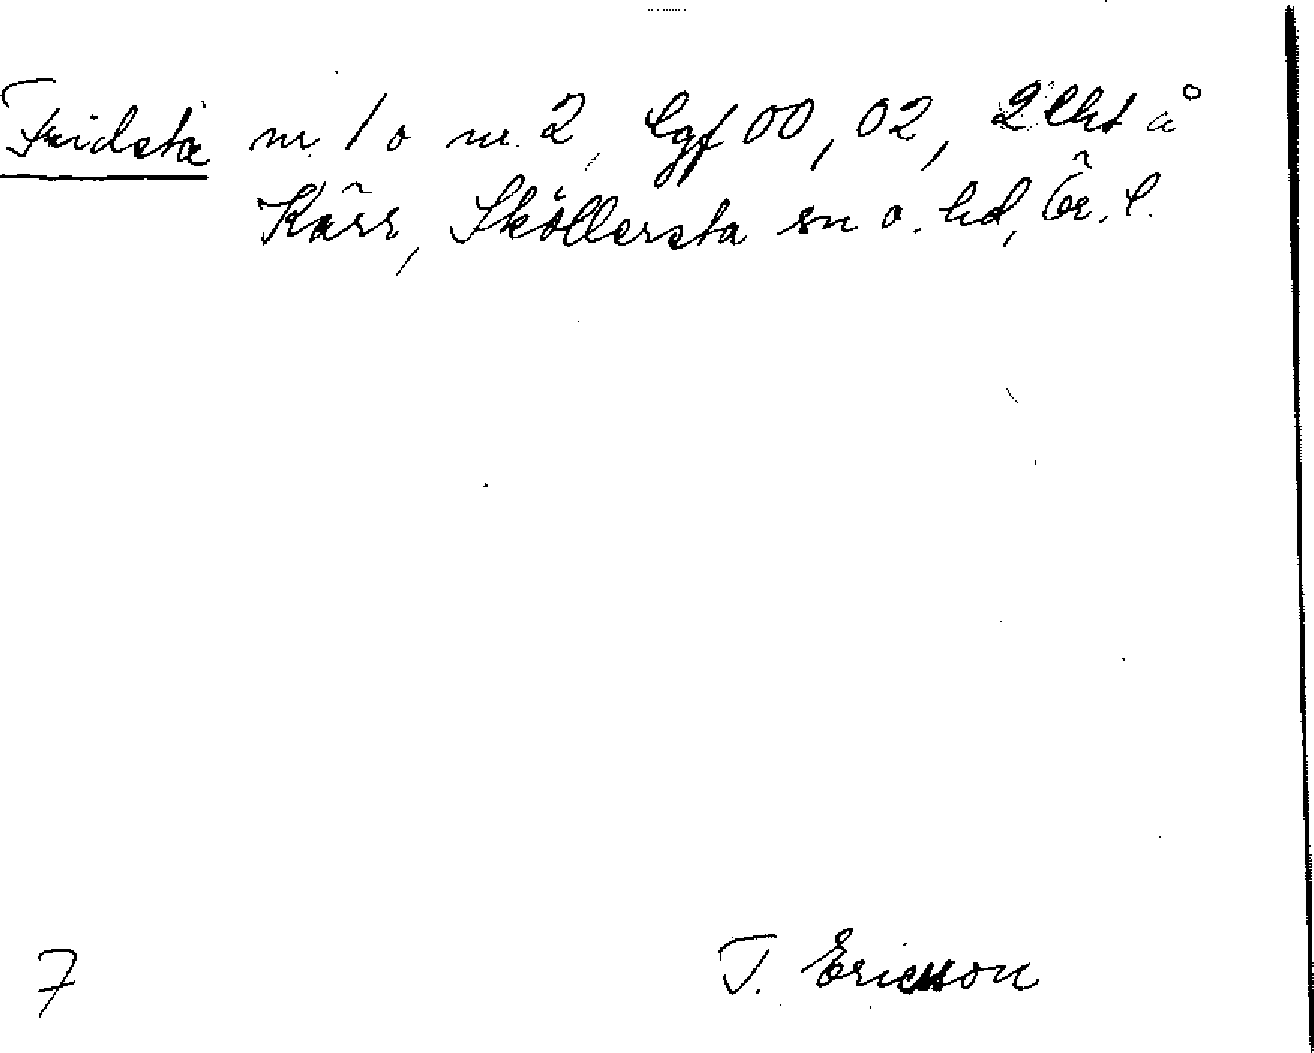 Fridsta nr. 1 o nr. 2, lgf 00, 02, 2 lht å
Kärr, Sköllersta sn o. hd, Ör. l.
7 T. Ericsson